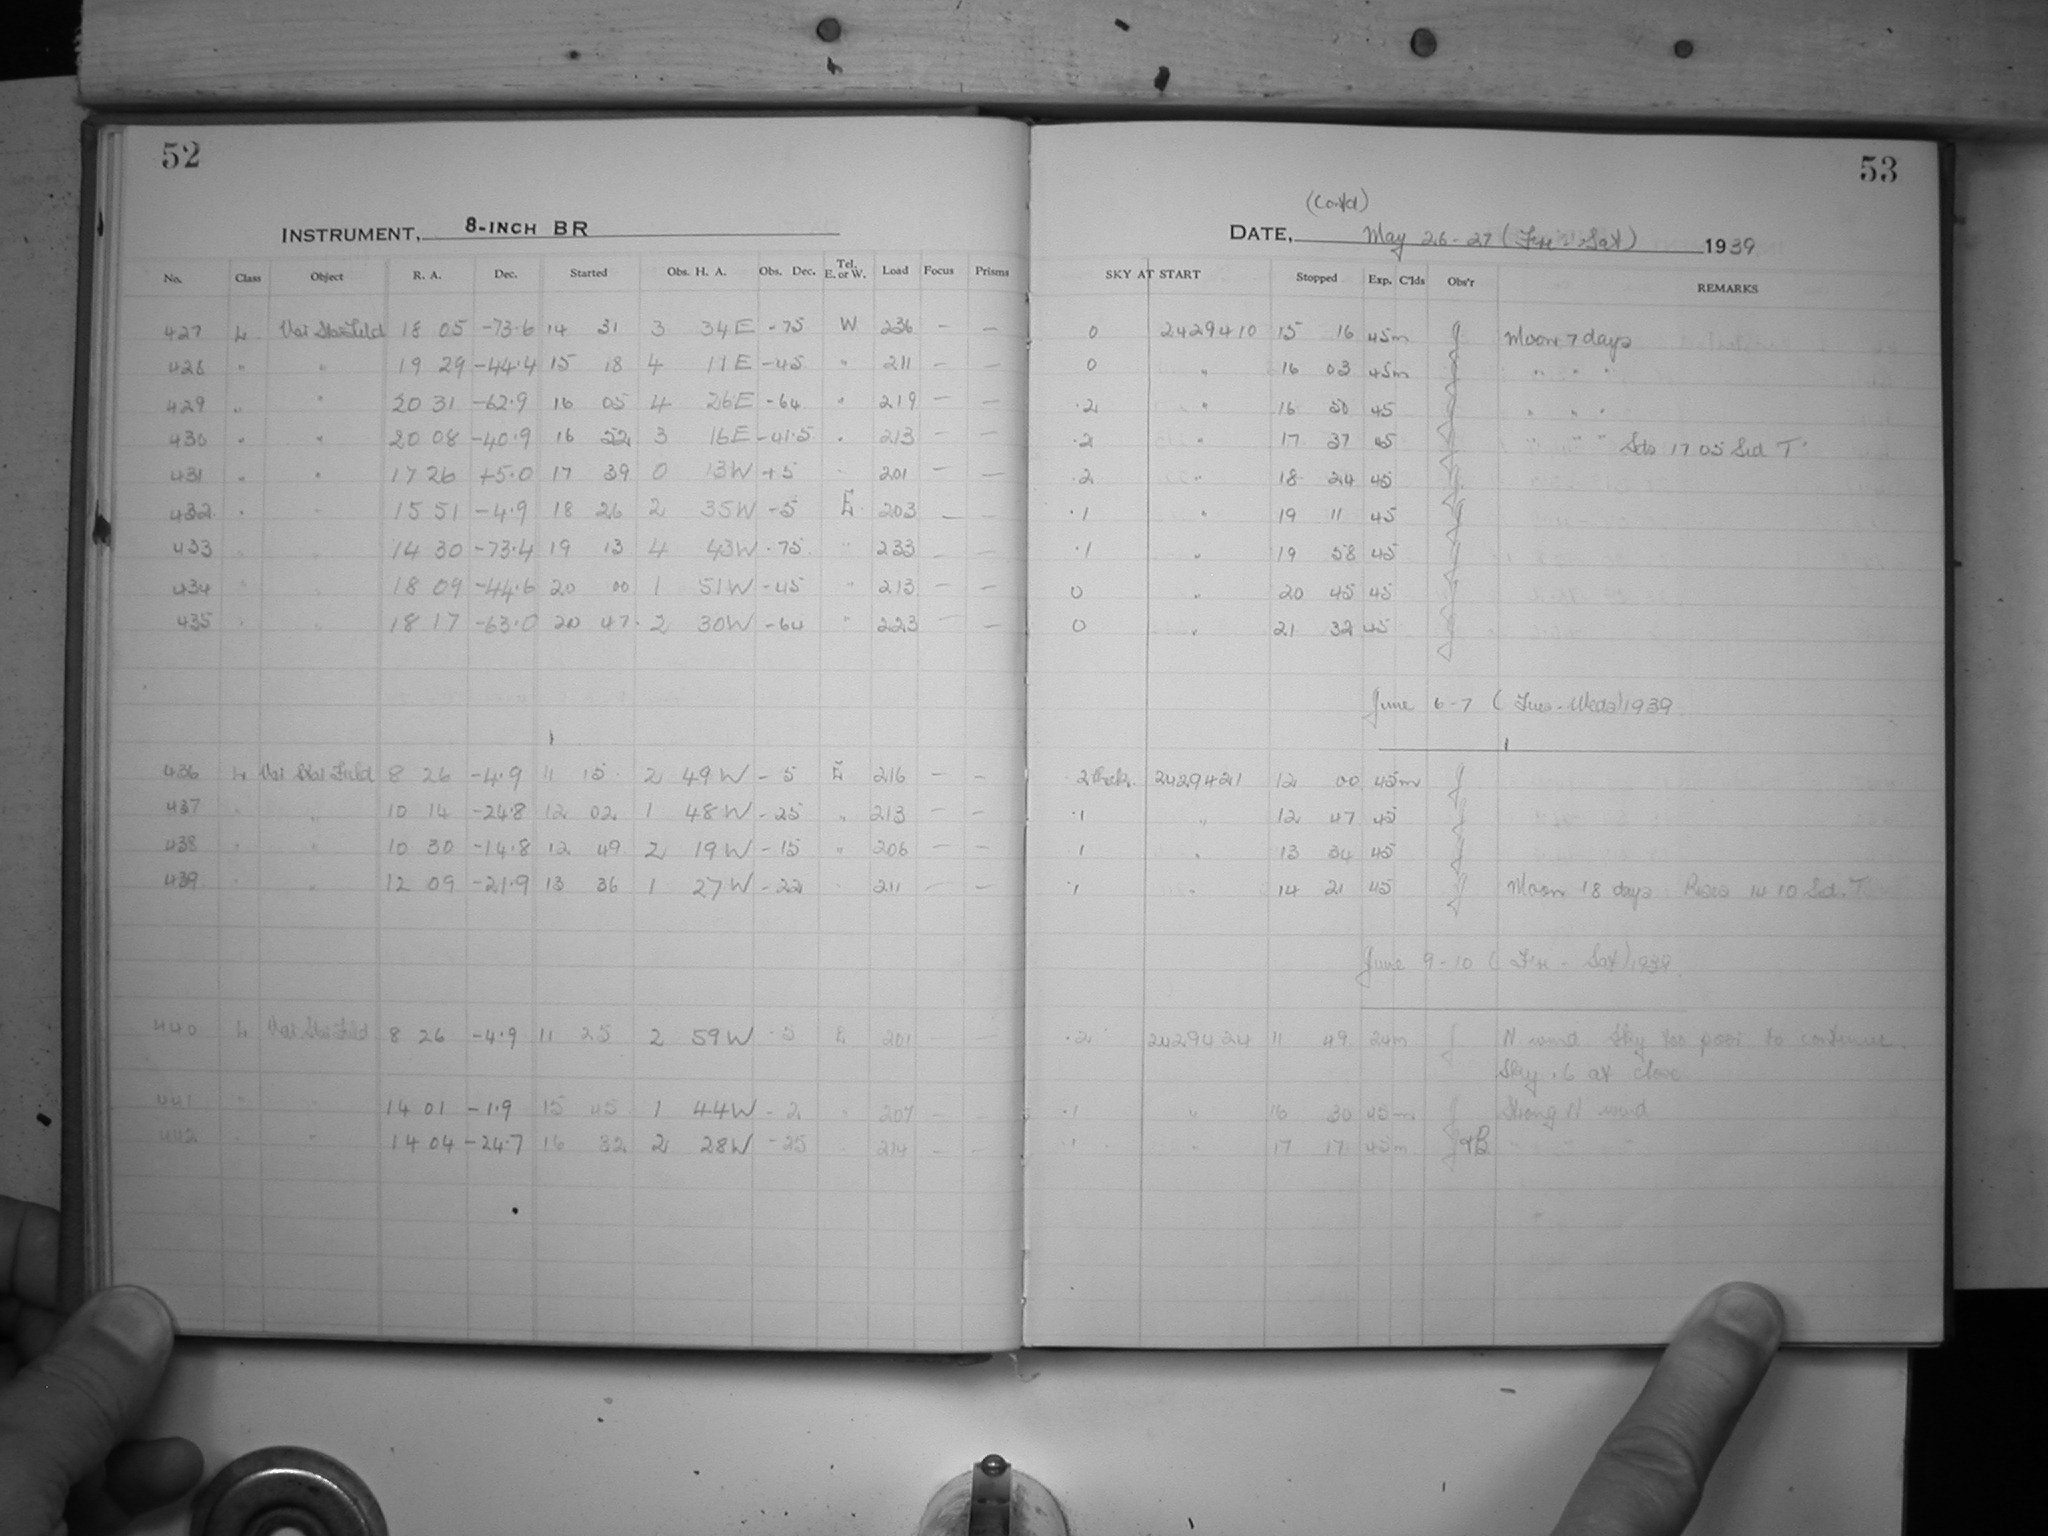 52
INSTRUMENT, 8-INCH BR
No. Class Object R. A. Dec. Started Obs. H. A. Obs. Dec. Tel. E. or W. Load Focus Prisms
427 L Var Star Field 18 05 -73.6 14 31 3 34E -75 W 236 - -
428 " " 19 29 -44.4 15 18 4 11E -45 " 211 - -
429 " " 20 31 -62.9 16 05 4 26E -64 " 219 - -
430 " " 20 08 -40.9 16 52 3 16E -41.5 " 213 - -
431 " " 17 26 +5.0 17 39 0 13W +5 " 201 - -
432 " " 15 51 -4.9 18 26 2 35W -5 E 203 - -
433 " " 14 30 -73.4 19 13 4 43W -75 " 233 - -
434 " " 18 09 -44.6 20 00 1 51W -45 " 213 - -
435 " " 18 17 -63.0 20 47 2 30W -64 " 223 - -
436 L Var Star Field 8 26 -4.9 11 15 2 49W -5 E 216 - -
437 " " 10 14 -24.8 12 02 1 48W -25 " 213 - -
438 " " 10 30 -14.8 12 49 2 19W -15 " 206 - -
439 " " 12 09 -21.9 13 36 1 27W -22 " 211 - -
440 L Var Star Field 8 26 -4.9 11 25 2 59W -5 E 201 - -
441 " " 14 01 -1.9 15 45 1 44W -2 " 207 - -
442 " " 14 04 -24.7 16 32 2 28W -25 " 214 - -
53
(Contd)
DATE, May 26-27 (Fri - Sat) 1939
SKY AT START Stopped Exp. C'lds Obs'r REMARKS
0 2429410 15 16 45m J Moon 7 days
0 " 16 03 45m J " " "
.2 " 16 50 45 J " " "
.2 " 17 37 45 J " " " Sets 17 05 Sid T
.2 " 18 24 45 J
.1 " 19 11 45 J
.1 " 19 58 45 J
0 " 20 45 45 J
0 " 21 32 45 J
June 6-7 (Tues-Weds) 1939
.2 thick 2429421 12 00 45m J
.1 " 12 47 45 J
.1 " 13 34 45 J
.1 " 14 21 45 J Moon 18 days Rises 14 10 Sid. T
June 9-10 (Fri - Sat) 1939
.2 2429424 11 49 24m J N wind Sky too poor to continue.
Sky .6 at close
.1 " 16 30 45m J Strong N wind
.1 " 17 17 45m J+B " " "